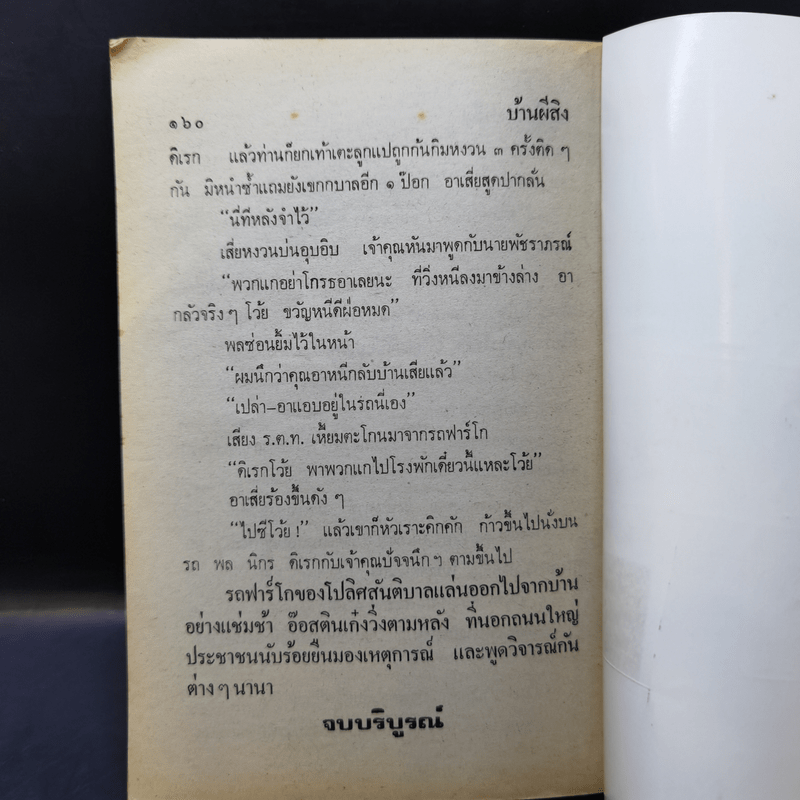 ๑๖๐ บ้านผีสิง
ดิเรก แล้วท่านก็ยกเท้าเตะลูกแปถูกก้นกิมหงวน ๓ ครั้งติด ๆ
กัน มิหนำซ้ำแถมยังเขกกบาลอีก ๑ ป๊อก อาเสี่ยสูดปากลั่น
“นี่ทีหลังจำไว้”
เสี่ยหงวนบ่นอุบอิบ เจ้าคุณหันมาพูดกับนายพัชราภรณ์
“พวกแกอย่าโกรธอาเลยนะ ที่วิ่งหนีลงมาข้างล่าง อา
กลัวจริง ๆ โว้ย ขวัญหนีดีฝ่อหมด”
พลซ่อนยิ้มไว้ในหน้า
“ผมนึกว่าคุณอาหนีกลับบ้านเสียแล้ว”
“เปล่า–อาแอบอยู่ในรถนี่เอง”
เสียง ร.ต.ท. เหี้ยมตะโกนมาจากรถฟาร์โก
“ดิเรกโว้ย พาพวกแกไปโรงพักเดี๋ยวนี้แหละโว้ย”
อาเสี่ยร้องขึ้นดัง ๆ
“ไปซีโว้ย !” แล้วเขาก็หัวเราะคิกคัก ก้าวขึ้นไปนั่งบน
รถ พล นิกร ดิเรกกับเจ้าคุณปัจจนึก ฯ ตามขึ้นไป
รถฟาร์โกของโปลิศสันติบาลแล่นออกไปจากบ้าน
อย่างแช่มช้า อ๊อสตินเก๋งวิ่งตามหลัง ที่นอกถนนใหญ่
ประชาชนนับร้อยยืนมองเหตุการณ์ และพูดวิจารณ์กัน
ต่าง ๆ นานา
จบบริบูรณ์